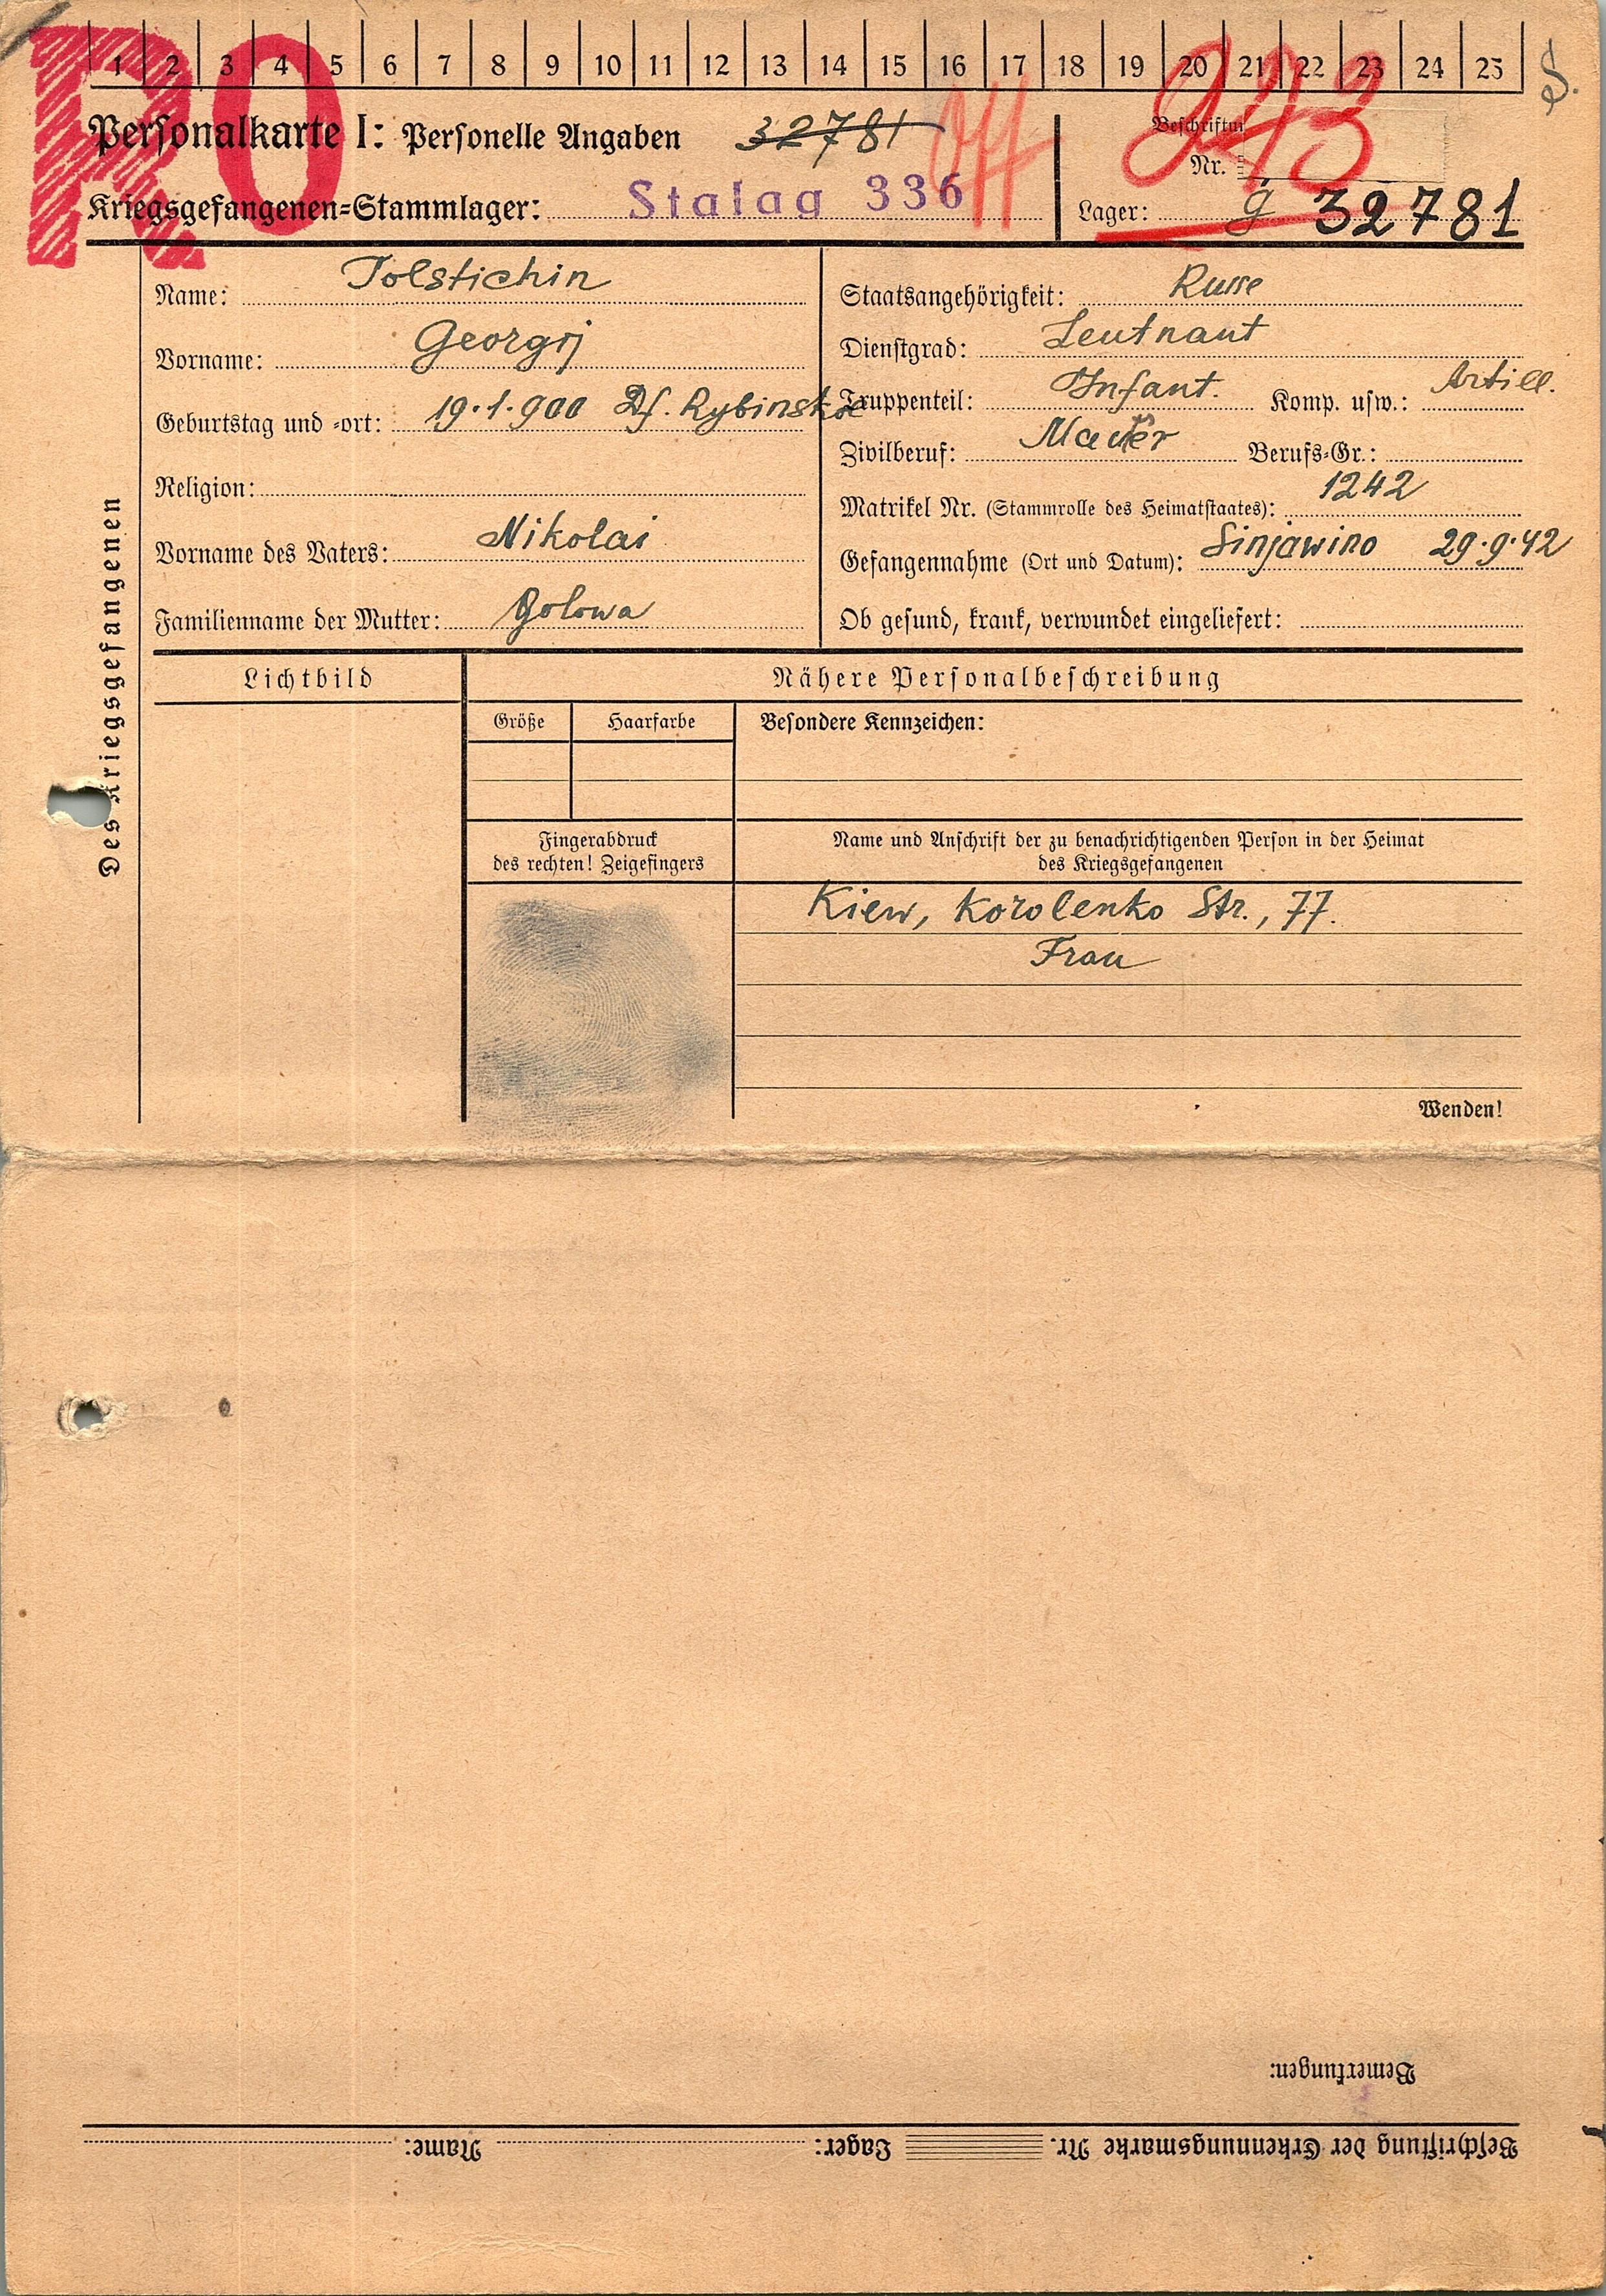 RO
1 2 3 4 5 6 7 8 9 10 11 12 13 14 15 16 17 18 19 20 21 22 23 24 25
S.
Personalkarte I: Personelle Angaben 32781 Off
Beschriftun
Nr.
Kriegsgefangenen-Stammlager: Stalag 336
Lager: g 32781
Des Kriegsgefangenen
Name: Tolstichin
Vorname: Georgij
Geburtstag und -ort: 19.1.900 Df. Rybinskoe
Religion:
Vorname des Vaters: Nikolai
Familienname der Mutter: Golowa
Staatsangehörigkeit: Russe
Dienstgrad: Leutnant
Truppenteil: Infant. Komp. usw.: Artill.
Zivilberuf: Berufs-Gr.:
Matrikel Nr. (Stammrolle des Heimatstaates): 1242
Gefangennahme (Ort und Datum): Sinjawino 29.9.42
Ob gesund, krank, verwundet eingeliefert:
Lichtbild
Nähere Personalbeschreibung
Größe
Haarfarbe
Besondere Kennzeichen:
Fingerabdruck
des rechten! Zeigefingers
Name und Anschrift der zu benachrichtigenden Person in der Heimat
des Kriegsgefangenen
Kiew, Korolenko Str., 77.
Frau
Wenden!
Bemerkungen:
Beschriftung der Erkennungsmarke Nr. Lager: Name: